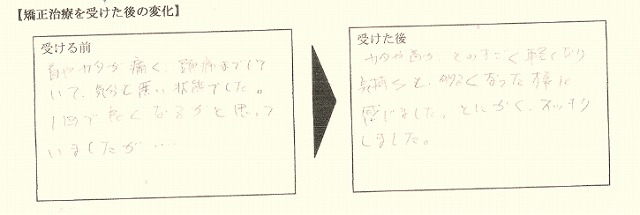 【矯正治療を受けた後の変化】
受ける前
首やカタが痛く、頭痛までして
いて、気分も悪い状態でした。
1回で良くなるかと思って
いましたが‥‥
受けた後
カタや首が、ものすごく軽くなり
気持ちも、明るくなった様に
感じました。とにかく、スッキリ
しました。